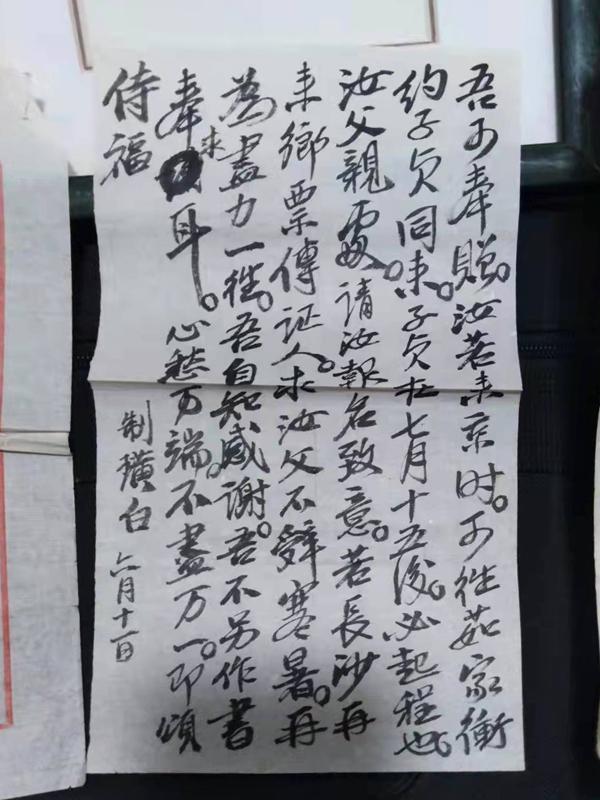 吾可奉賜。汝若来京时。可往茹家衝
约子贞同来。子贞在七月十五後。必起程也。
汝父親處。请汝報名致意。若長沙再
来鄉票傳证人。求汝父不辞寒暑。再
為盡力一往。吾自知感谢。吾不另作書
奉求耳。心愁万端。不盡万一。即頌
侍福
制璜白 六月十一日